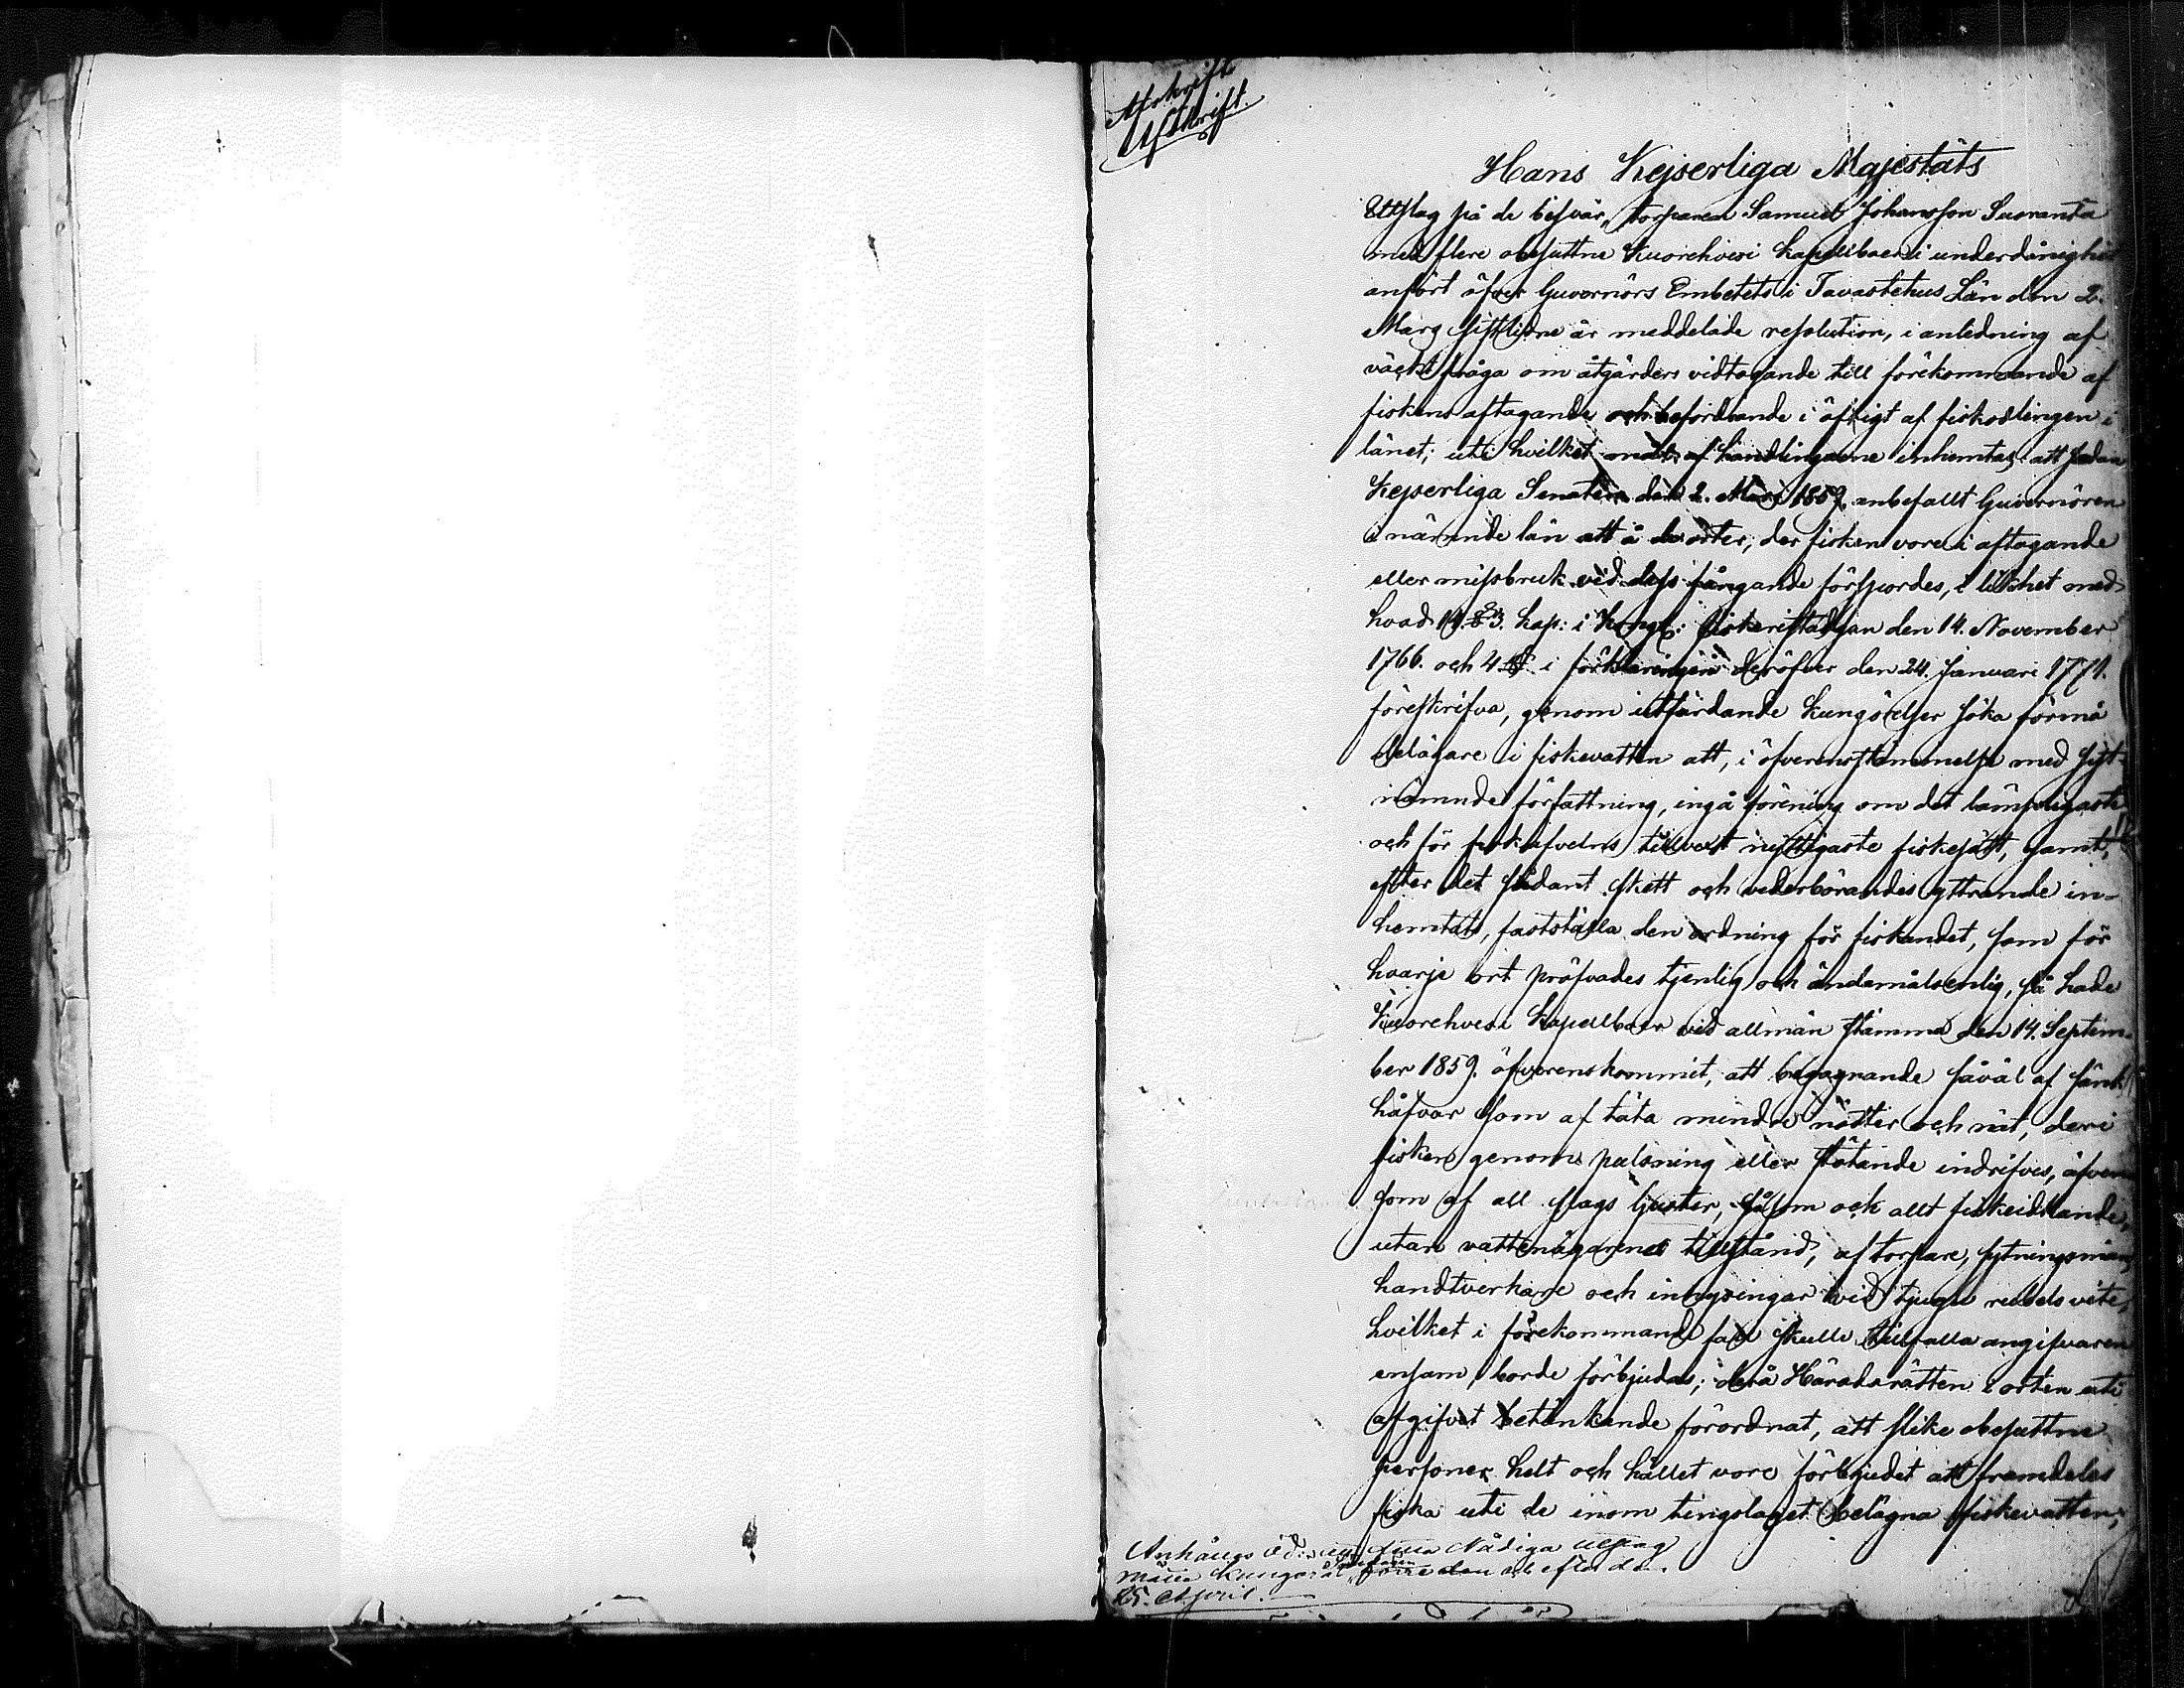 Afskrift
Afskrift.
Hans Kejserliga Majestäts
Utslag på de besvär, torparen Samuel Johansson Suoranta
med flere obesuttne Kuorehvesi kapellboer i underdånighet
anfört öfver Guvernörs Embetets i Tavastehus Län den 2.
Mars sistlidne år meddelade resolution, i anledning af
väckt fråga om åtgärders vidtagande till förekommande af
fiskens aftagande och befordrande i öfrigt af fiskodlingen i
länet; uti hvilket mål af handlingarne inhemtas: att sedan
Kejserliga Senaten den 2. Mars 1859 anbefallt Guvernören
i nämnde län att å de orter, der fisken vore i aftagande
eller missbruk vid dess fångande försporдes, i likhet med
hvad 11. § 3. kap: i Kongl: fiskeristadgan den 14. November
1766. och 4 § i förklaringen deröfver den 24. Januari 1771.
föreskrifva, genom utfärdande kungörelser söka förmå
delägare i fiskevatten att, i öfverensstämmelse med sist-
nämnde författning, ingå förening om det lämpligaste
och för fiskafvelns tillvext nyttigaste fiskesätt, samt,
efter det sådant skett och vederbörandes yttrande in-
hemtats, fastställa den ordning för fiskandet, som för
hvarje ort pröfvades tjenlig och ändamålsenlig, så hade
Kuorehvesi Kapellboer vid allmän stämma den 14. Septem-
ber 1859. öfverenskommit, att begagnande såväl af sänk
håfvar som af täta mindre nötter och nät, deri
fisken genom pulsning eller stötande indrifves, äfven
som af all slags ljuster, såsom ock allt fiskeidkande,
utan vattenägarenes tillstånd, af torpare, sytningsmän,
handtverkare och inhysingar vid tjugu rubels vite,
hvilket i förekommande fall skulle tillfalla angifvaren
ensam, borde förbjudas; derå Häradsrätten i orten uti
afgifvet betänkande förordnat, att slike obesuttne
personer helt och hållet vore förbjudet att framdeles
fiska uti de inom tingslaget belägna fiskevatten;
Nådiga utslag
25. April.